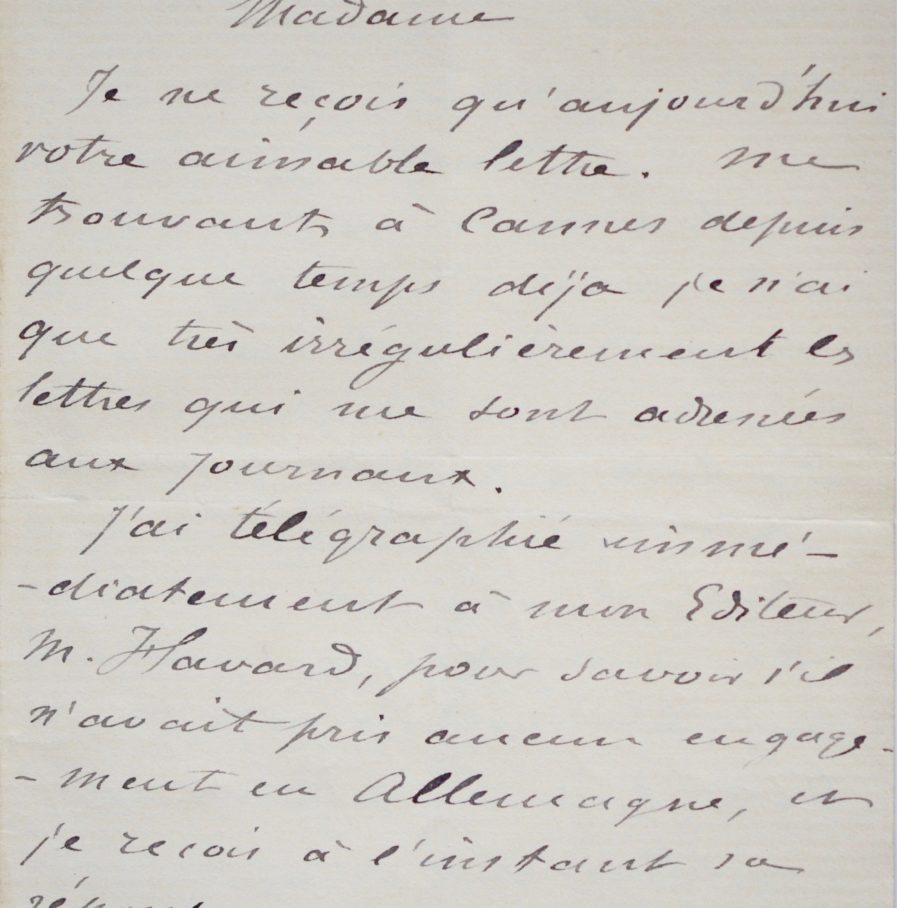 Madame
Je ne reçois qu'aujourd'hui
votre aimable lettre. Me
trouvant à Cannes depuis
quelque temps déjà je n'ai
que très irrégulièrement les
lettres qui me sont adressées
aux journaux.
J'ai télégraphié immé-
-diatement à mon Editeur,
M. Havard, pour savoir s'il
n'avait pris aucun engage-
-ment en Allemagne, et
je reçois à l'instant sa